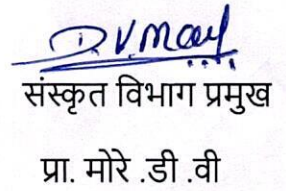 D.V.More
संस्कृत विभाग प्रमुख
प्रा. मोरे .डी .वी